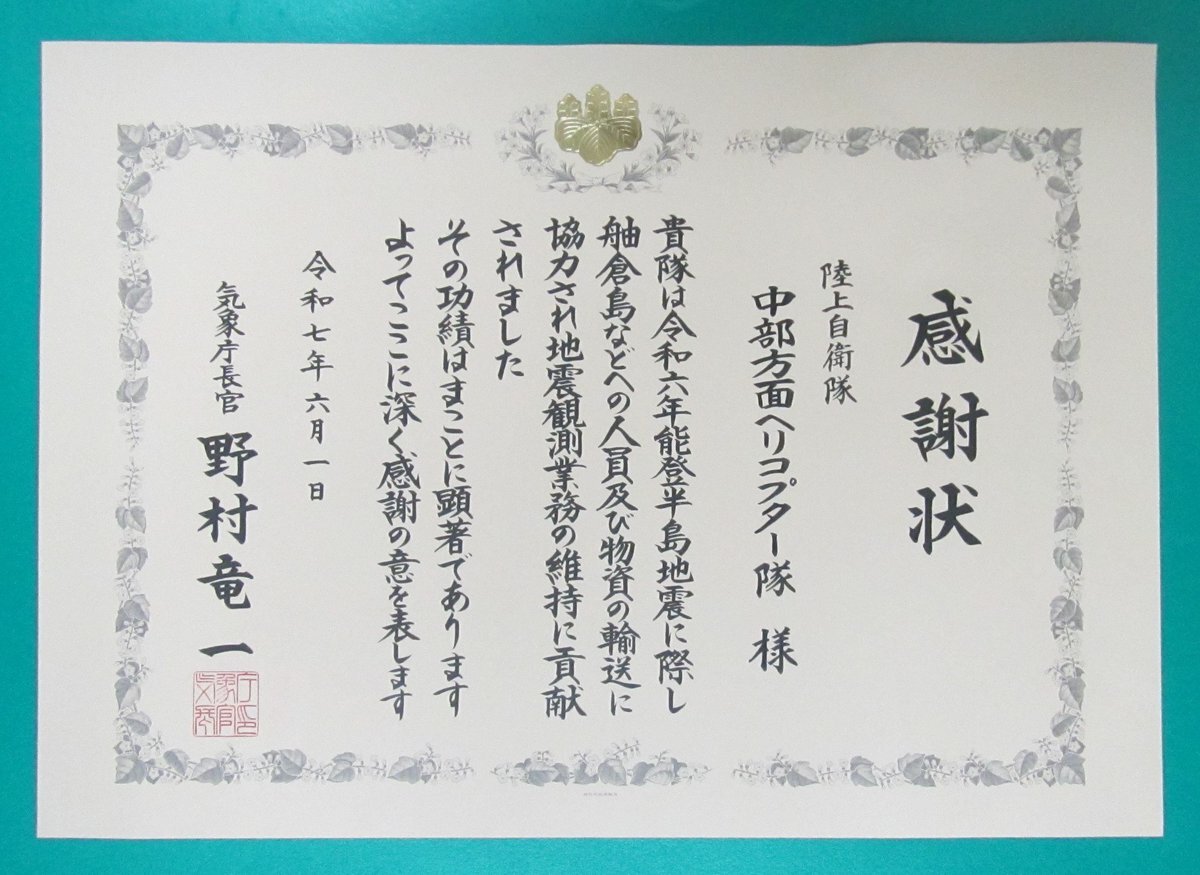 感謝状
陸上自衛隊
中部方面ヘリコプター隊 様
貴隊は令和六年能登半島地震に際し
舳倉島などへの人員及び物資の輸送に
協力され地震観測業務の維持に貢献
されました
その功績はまことに顕著であります
よってここに深く感謝の意を表します
令和七年六月一日
気象庁長官 野村竜一